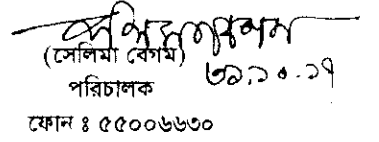 (সেলিমা বেগম)
৩১.১০.১৭
পরিচালক
ফোন ঃ ৫৫০০৬৬৩০